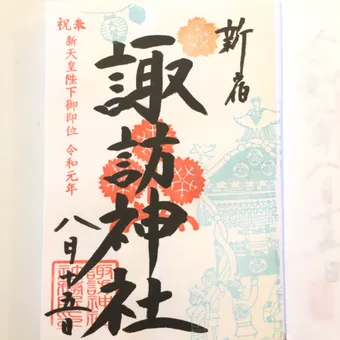 新宿
諏訪神社
奉祝
新天皇陛下御即位 令和元年
八月廿五日